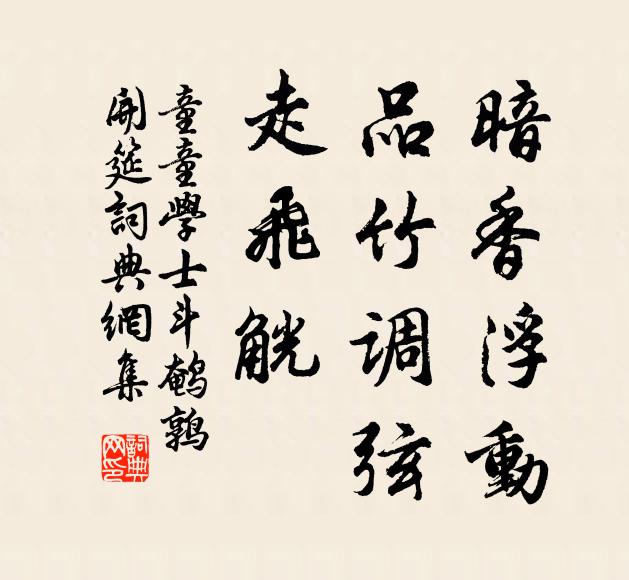 暗香浮動
品竹调弦
走飛觥
童童學士斗鹌鹑
開筵詞典網集
詞典網印